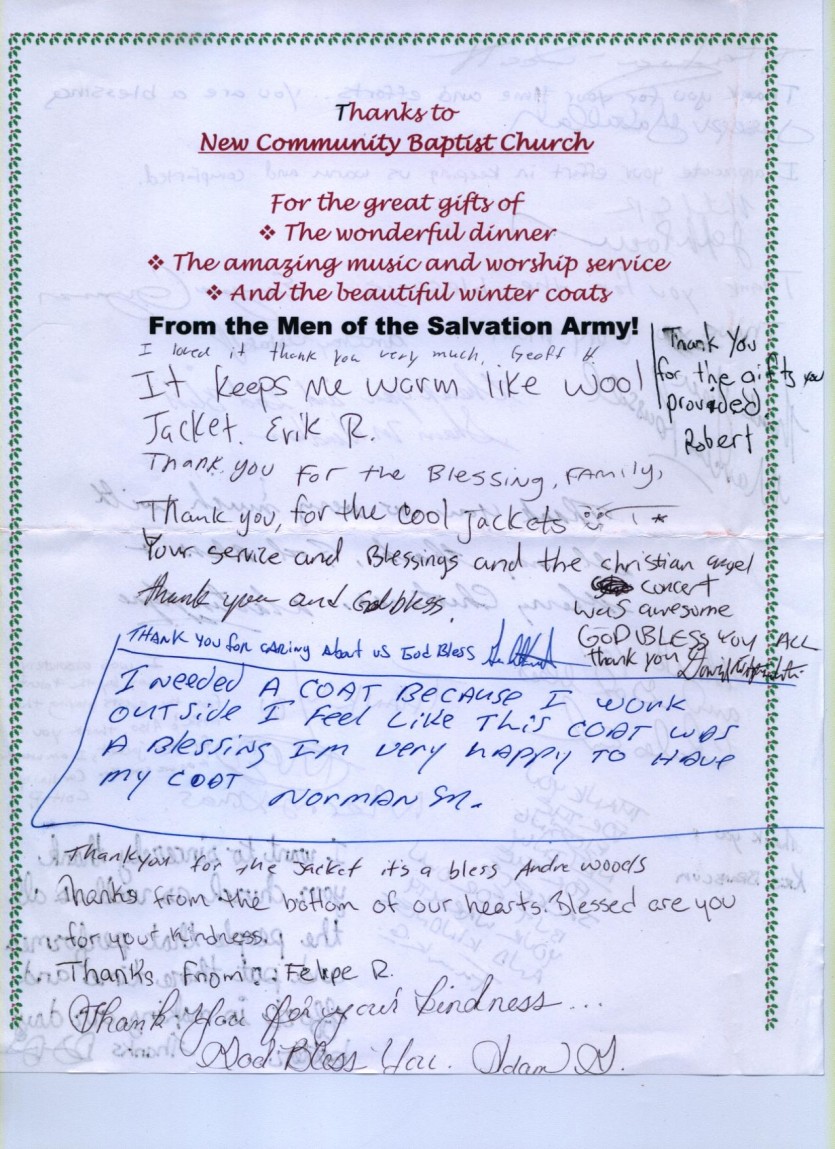 Thanks to
New Community Baptist Church
For the great gifts of
❖ The wonderful dinner
❖ The amazing music and worship service
❖ And the beautiful winter coats
From the Men of the Salvation Army!
I loved it thank you very much, Geoff
Thank You
for the gifts you
provided
Robert
It keeps me warm like wool
Jacket. Erik R.
Thank you For the Blessing, Family,
Thank you, for the cool jackets
Your service and Blessings and the christian angel
concert
was awesome
GOD BLESS YOU ALL
thank you
thank you and God bless.
THANK YOU for CARING About us God Bless
I NEEDED A COAT BECAUSE I WORK
OUTSIDE I FEEL LIKE THIS COAT WAS
A BLESSING I'M VERY HAPPY TO HAVE
MY COAT NORMAN M.
Thankyou for the Jacket it's a bless Andre Woods
Thanks from the bottom of our hearts. Blessed are you
for your kindness.
Thanks from: Felipe R.
Thank You for your kindness...
God Bless You. Adam G.